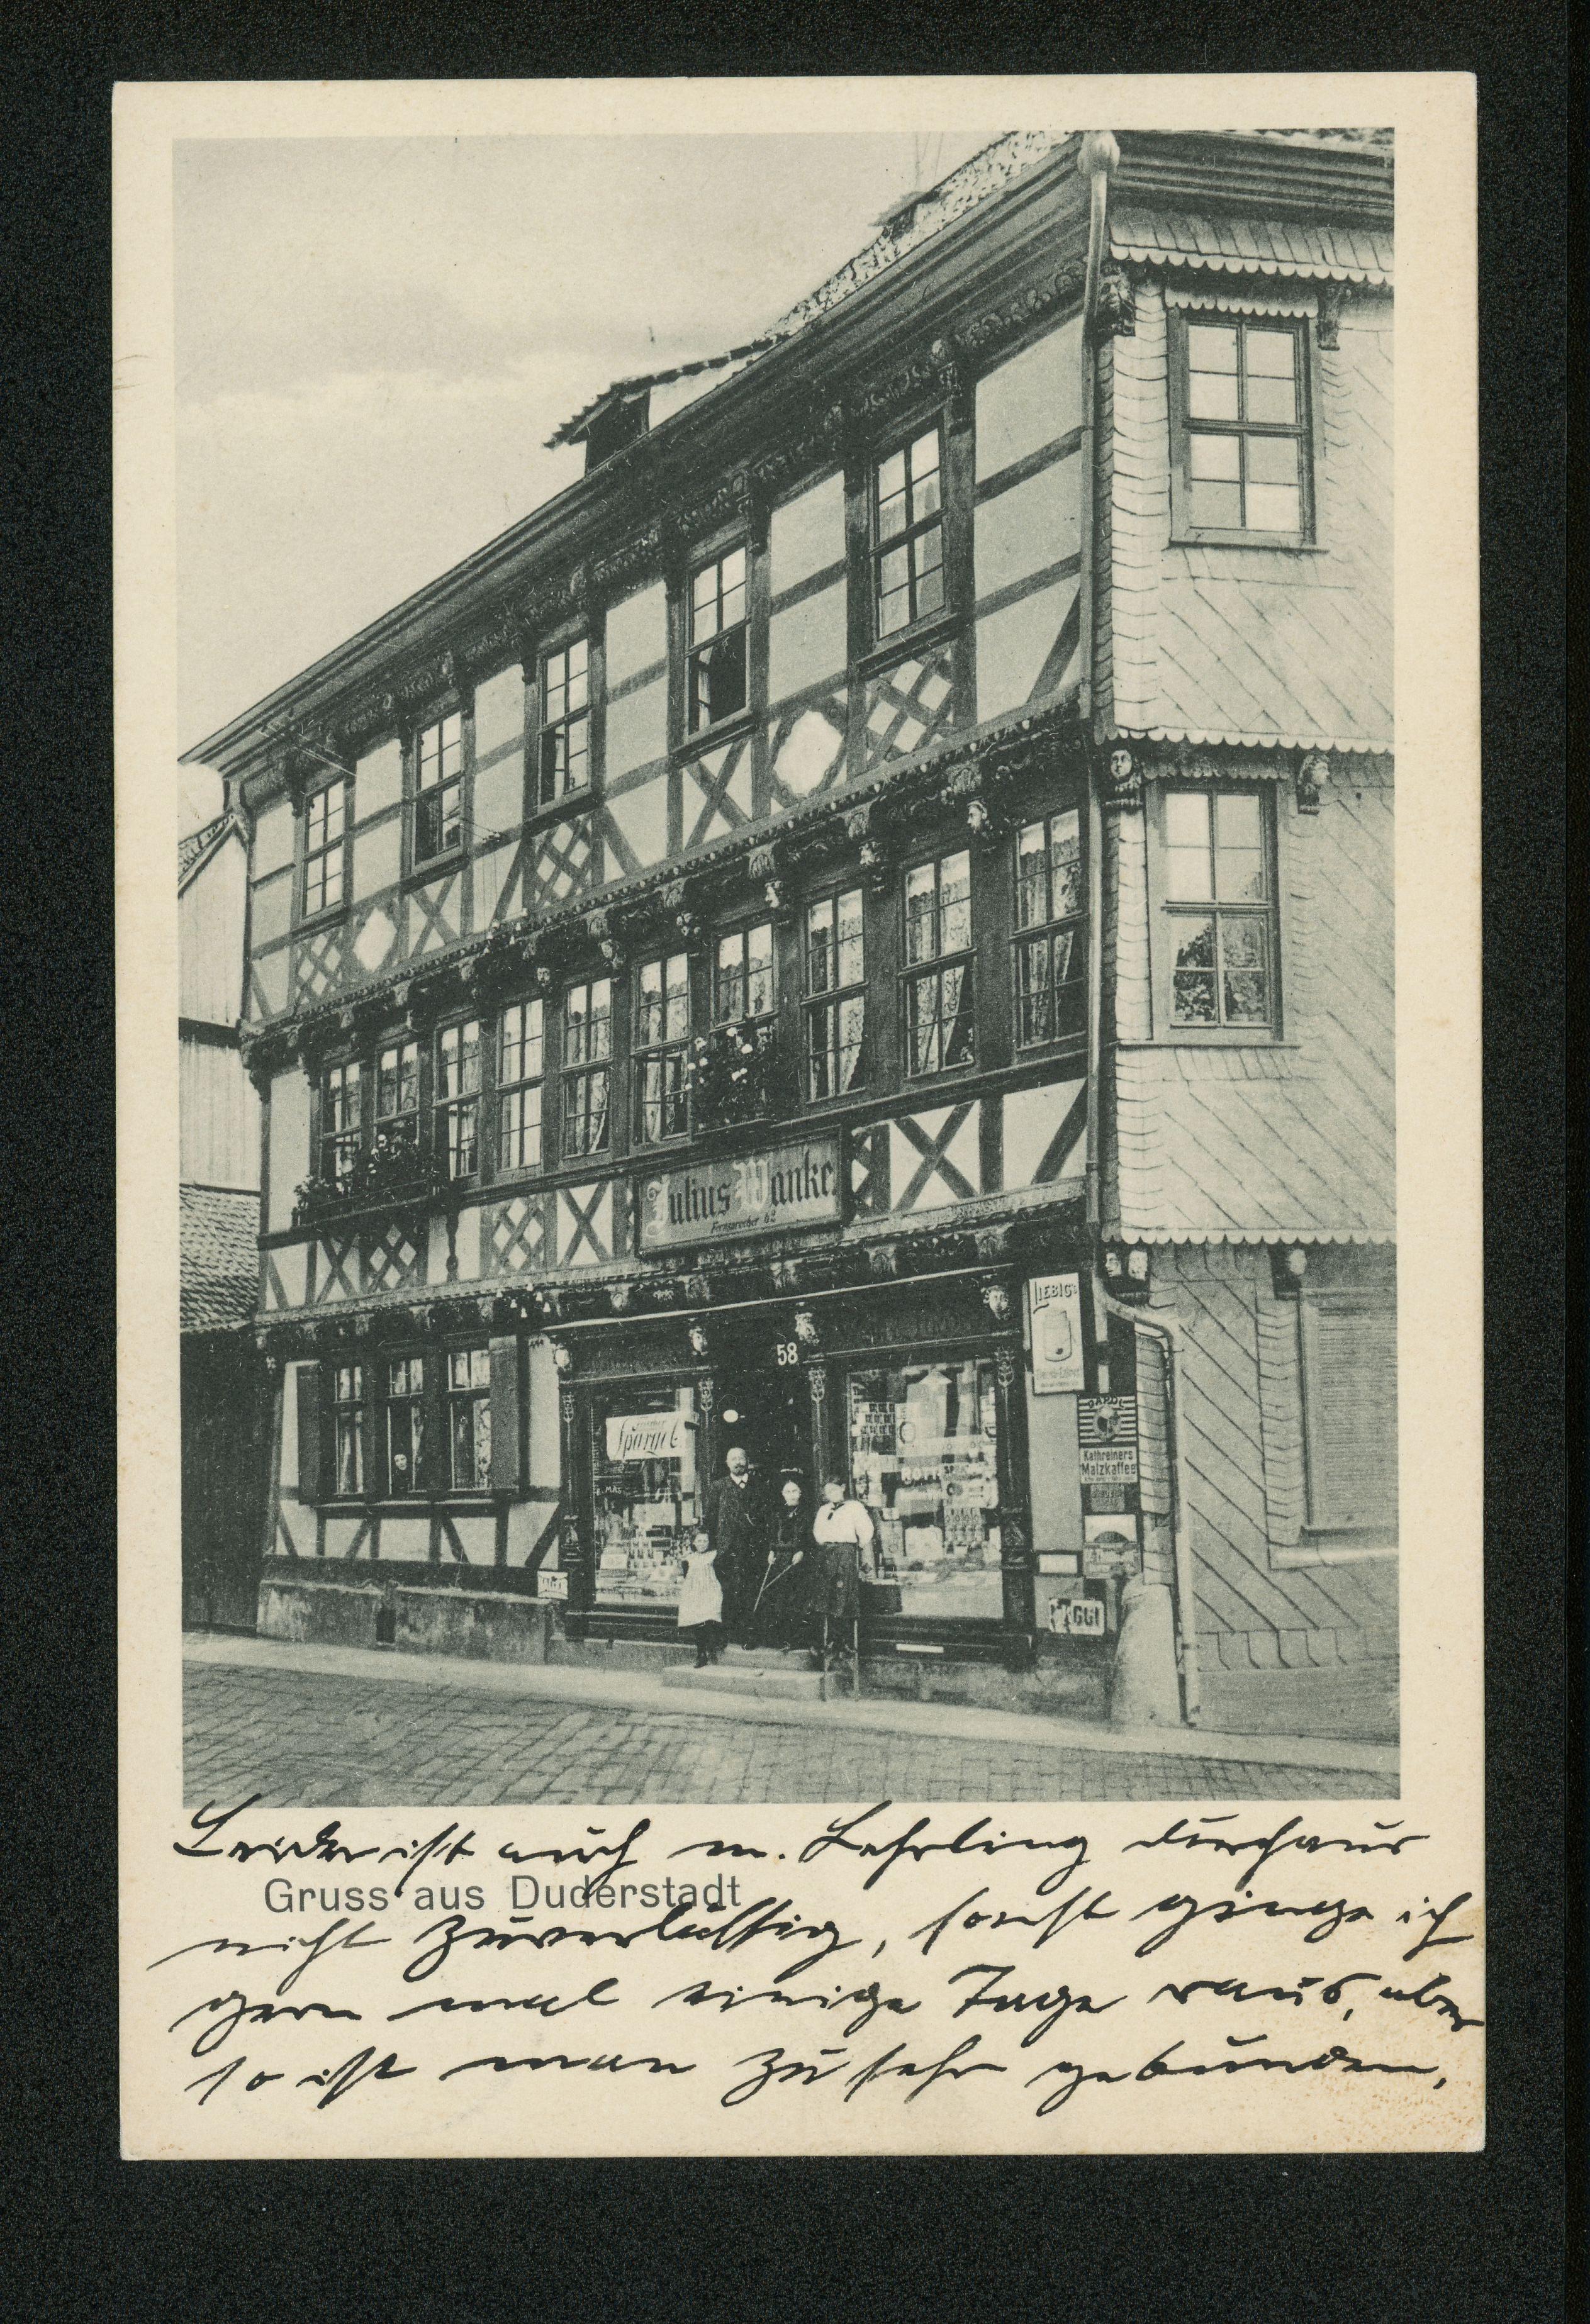 Julius Wanke
Fernsprecher 62
58
LIEBIG'S
Spargel
Kathreiners
Malzkaffee
MAGGI
Leider ist auch m. Lehrling durchaus
Gruss aus Duderstadt
nicht zuverlässig, sonst ginge ich
gern mal einige Tage raus, aber
so ist man zu sehr gebunden,